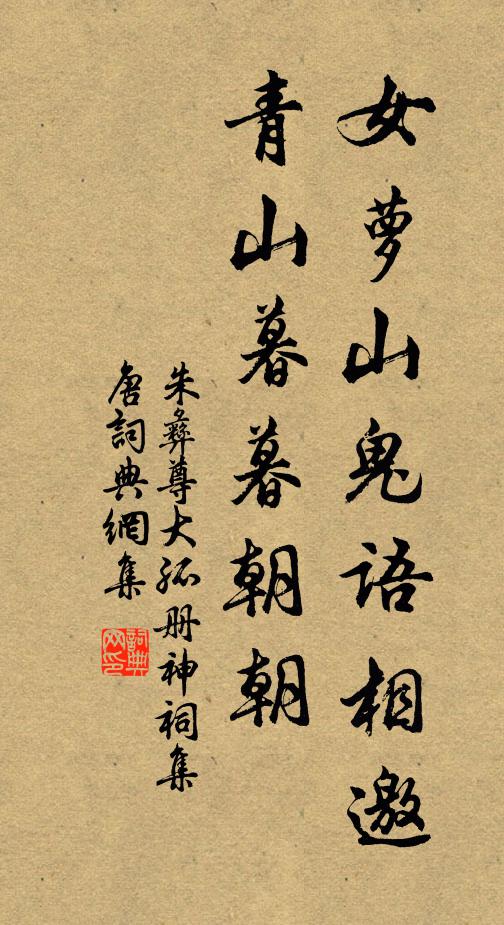 女萝山鬼语相邀
青山暮暮朝朝
朱彝尊大孤册神祠集
唐詞典網集
詞典
网印